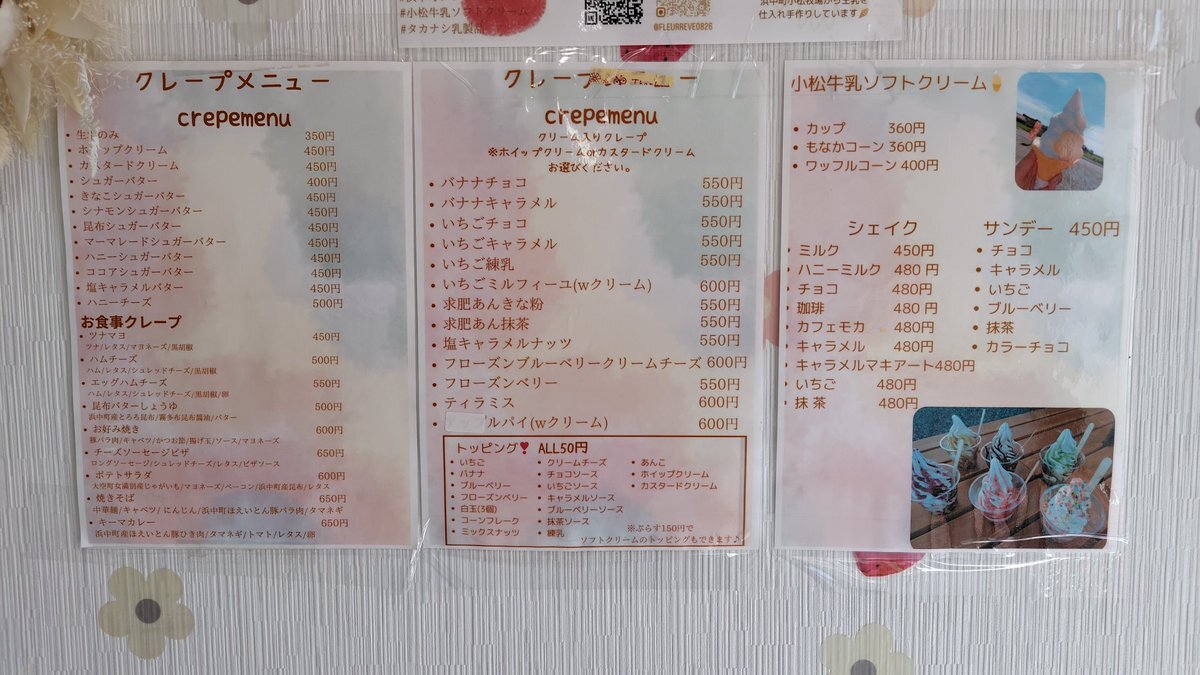 #小松牛乳ソフトクリーム
#タカナシ乳製品
@FLEURREVE0826
浜中町小松牧場から生乳を
仕入れ手作りしています
クレープメニュー
crepemenu
・生地のみ 350円
・ホイップクリーム 450円
・カスタードクリーム 450円
・シュガーバター 400円
・きなこシュガーバター 450円
・シナモンシュガーバター 450円
・昆布シュガーバター 450円
・マーマレードシュガーバター 450円
・ハニーシュガーバター 450円
・ココアシュガーバター 450円
・塩キャラメルバター 450円
・ハニーチーズ 500円
お食事クレープ
・ツナマヨ 450円
ツナ/レタス/マヨネーズ/黒胡椒
・ハムチーズ 500円
ハム/レタス/シュレッドチーズ/黒胡椒
・エッグハムチーズ 550円
ハム/レタス/シュレッドチーズ/黒胡椒/卵
・昆布バターしょうゆ 500円
浜中町産とろろ昆布/霧多布昆布醤油/バター
・お好み焼き 600円
豚バラ肉/キャベツ/かつお節/揚げ玉/ソース/マヨネーズ
・チーズソーセージピザ 650円
ロングソーセージ/シュレッドチーズ/レタス/ピザソース
・ポテトサラダ 600円
大空町女満別産じゃがいも/マヨネーズ/ベーコン/浜中町産昆布/レタス
・焼きそば 650円
中華麺/キャベツ/にんじん/浜中町ほえいとん豚バラ肉/タマネギ
・キーマカレー 650円
浜中町産ほえいとん豚ひき肉/タマネギ/トマト/レタス/卵
クレープ ュー
crepemenu
クリーム入りクレープ
※ホイップクリームorカスタードクリーム
お選びください。
・バナナチョコ 550円
・バナナキャラメル 550円
・いちごチョコ 550円
・いちごキャラメル 550円
・いちご練乳 550円
・いちごミルフィーユ(wクリーム) 600円
・求肥あんきな粉 550円
・求肥あん抹茶 550円
・塩キャラメルナッツ 550円
・フローズンブルーベリークリームチーズ 600円
・フローズンベリー 550円
・ティラミス 600円
・ プルパイ(wクリーム) 600円
トッピング❣ ALL50円
・いちご ・クリームチーズ ・あんこ
・バナナ ・チョコソース ・ホイップクリーム
・ブルーベリー ・いちごソース ・カスタードクリーム
・フローズンベリー ・キャラメルソース
・白玉(3個) ・ブルーベリーソース
・コーンフレーク ・抹茶ソース
・ミックスナッツ ・練乳
※ぷらす150円で
ソフトクリームのトッピングもできます♪
小松牛乳ソフトクリーム🍦
・カップ 360円
・もなかコーン 360円
・ワッフルコーン 400円
シェイク
・ミルク 450円
・ハニーミルク 480円
・チョコ 480円
・珈琲 480円
・カフェモカ 480円
・キャラメル 480円
・キャラメルマキアート480円
・いちご 480円
・抹茶 480円
サンデー 450円
・チョコ
・キャラメル
・いちご
・ブルーベリー
・抹茶
・カラーチョコ